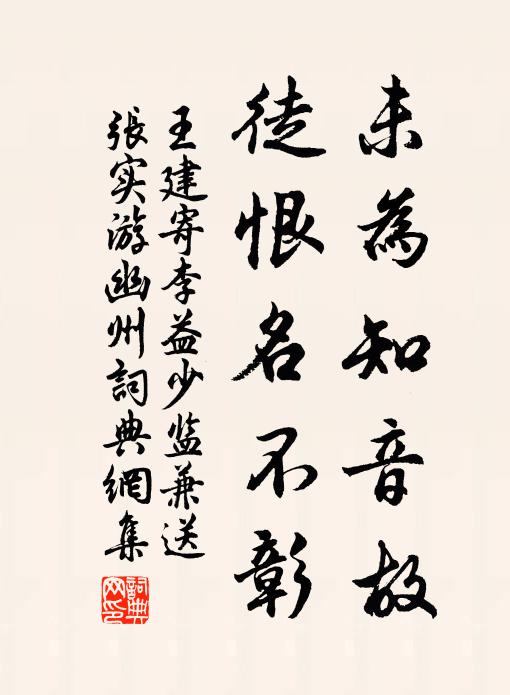 未為知音故
徒恨名不彰
王建寄李益少监兼送
張实游幽州詞典網集
詞典网印